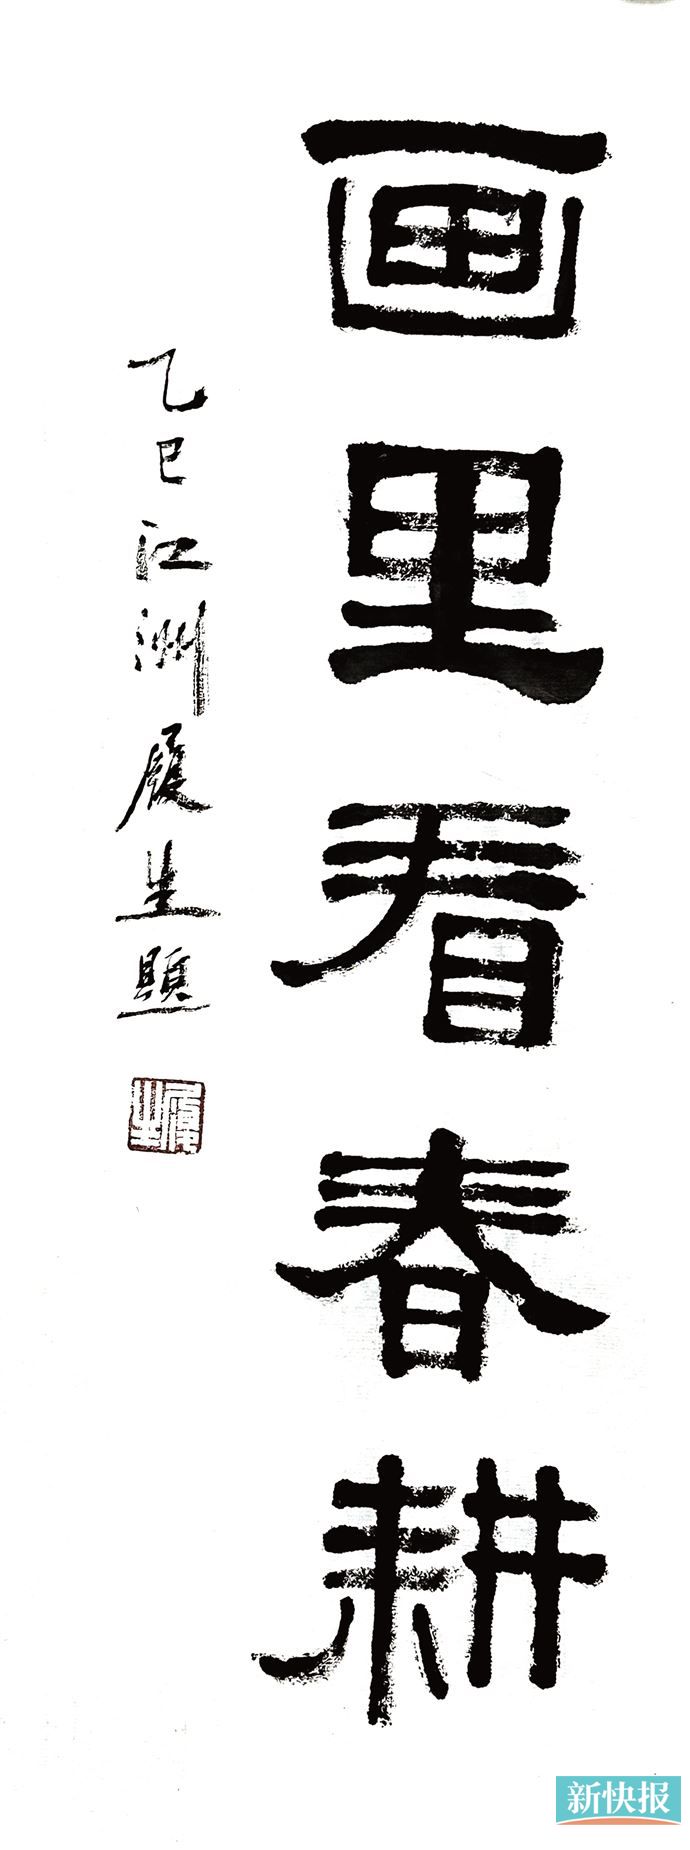 画里看春耕
乙巳江洲履生题
履生
新快报